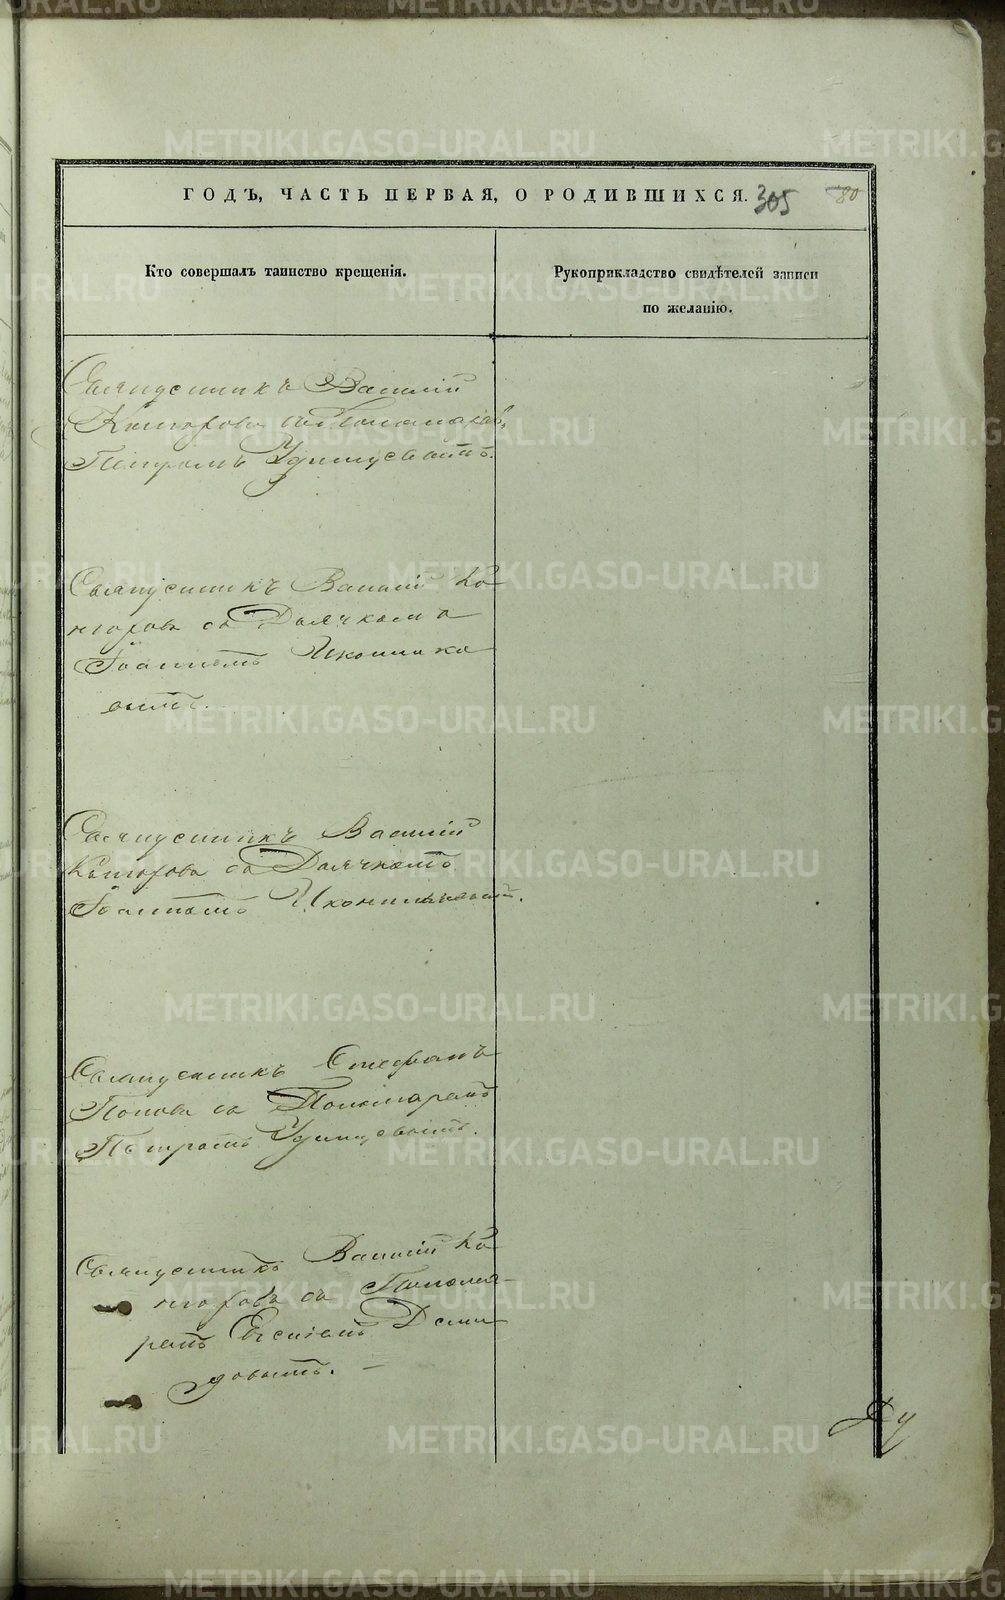 ГОДЪ, ЧАСТЬ ПЕРВАЯ, О РОДИВШИХСЯ. 305 80
Кто совершалъ таинство крещенія.
Рукоприкладство свидѣтелей записи
по желанію.
Священникъ Василій
Петромъ Удинцовымъ.
Священникъ Василій Ко
нюховъ съ Дьячкомъ
Іоанномъ Иконнико
вымъ.
Священникъ Василій
Конюховъ съ Дьячкомъ
Іоанномъ Иконниковымъ.
Священникъ Стефанъ
Поповъ съ Пономаремъ
Петромъ Удинцовымъ.
Священникъ Василій Ко
нюховъ съ Понома
ремъ Евгеніемъ Деми
довымъ.
METRIKI.GASO-URAL.RU